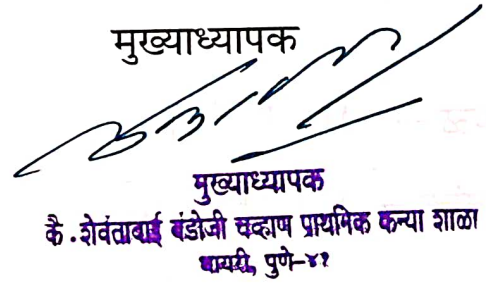 मुख्याध्यापक
मुख्याध्यापक
कै. शेवंताबाई बंडोजी चव्हाण प्राथमिक कन्या शाळा
धायरी, पुणे-४१